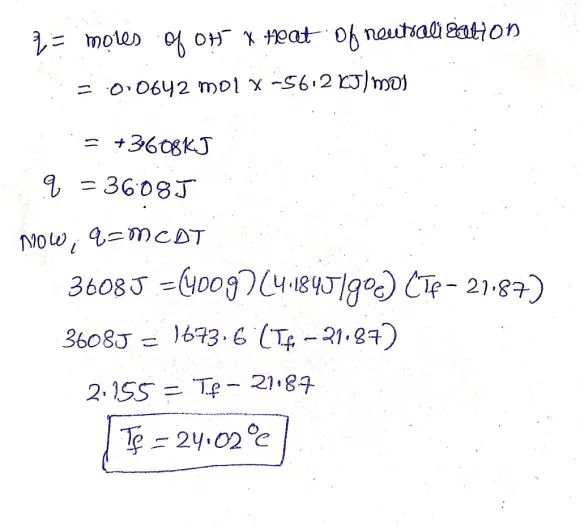 q = moles of OH⁻ x Heat of neutralization
= 0.0642 mol x -56.2 KJ/mol
= +3608KJ
q = 3608J
Now, q=mCΔT
3608J = (400g) (4.184J/g°c) (Tf - 21.87)
3608J = 1673.6 (Tf - 21.87)
2.155 = Tf - 21.87
Tf = 24.02°c